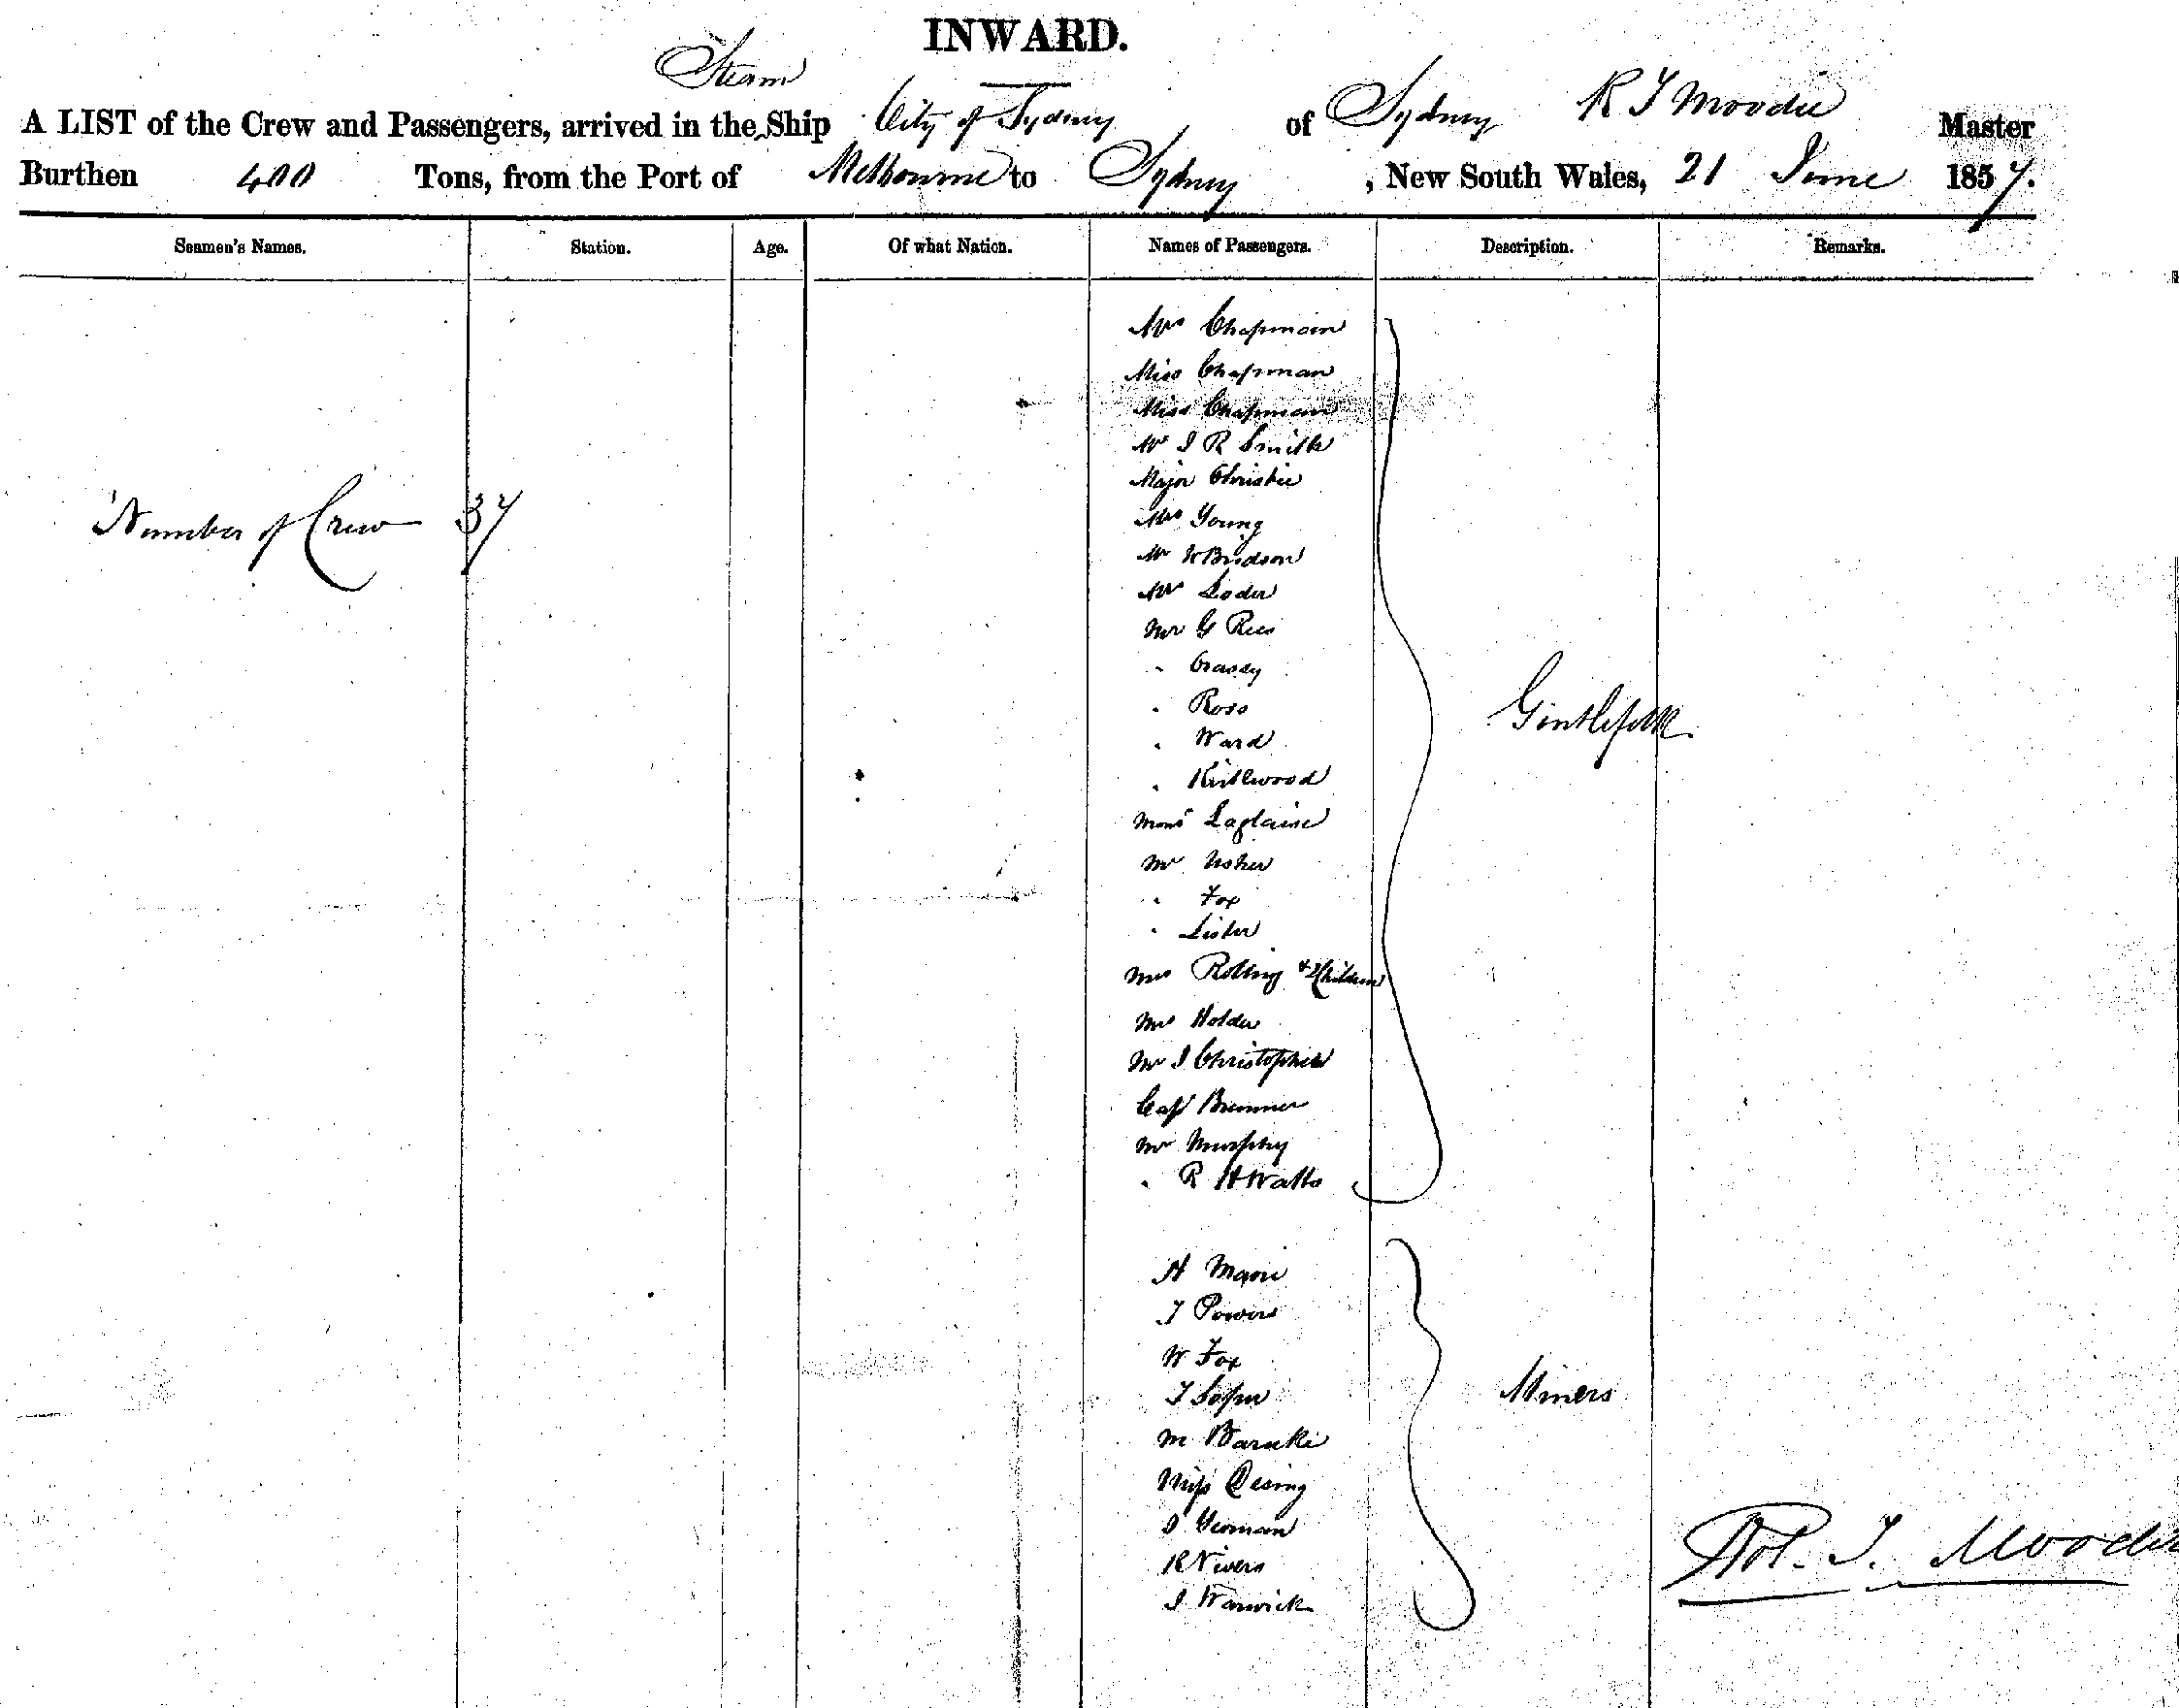 INWARD.
Steam
A LIST of the Crew and Passengers, arrived in the Ship City of Sydney of Sydney R T Moodie Master
Burthen 400 Tons, from the Port of Melbourne to Sydney, New South Wales, 21 June 1857.
Seamen's Names. Station. Age. Of what Nation. Names of Passengers. Description. Remarks.
Mrs Chapman
Miss Chapman
Miss Chapman
Mr J R Smith
Major Christie
Number of Crew 37
Mrs Young
Mr Bridson
Mr Loder
Mr G Rees
" 
" Ross
Gentlefolk
" Ward
" Kirkwood
Mons Laplaine
Mr Usher
" Fox
" Lister
Mrs & 2 Children
Mrs Holder
Mr J Christopher
Capt Bremner
Mr Murphy
" R H Watts
H
T Powers
W Fox
T Soper
Miners
M
Miss
J Yeoman
R Nivers
J Warwick
Rob. T. Moodie